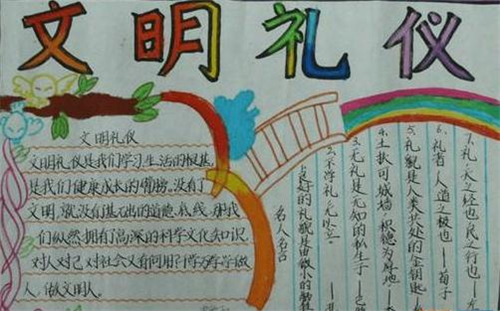 文明礼仪
文明礼仪
文明礼仪是我们学习生活的根基,
是我们健康成长的臂膀。没有了
文明,就没有基础的道德底线,那我
们纵然拥有高深的科学文化知识,
对人对己,对社会又有何用?千学万学学做
人,做文明人。
7.礼,天之经也,民之行也——
6.礼者,人道之极也——荀子
5.礼貌是人类共处的金钥匙——
4.土扶可城墙,积德为厚地——
3.无礼是无知的私生子——
2.不学礼,无以立——
良好的礼貌是由微小的
名人名言